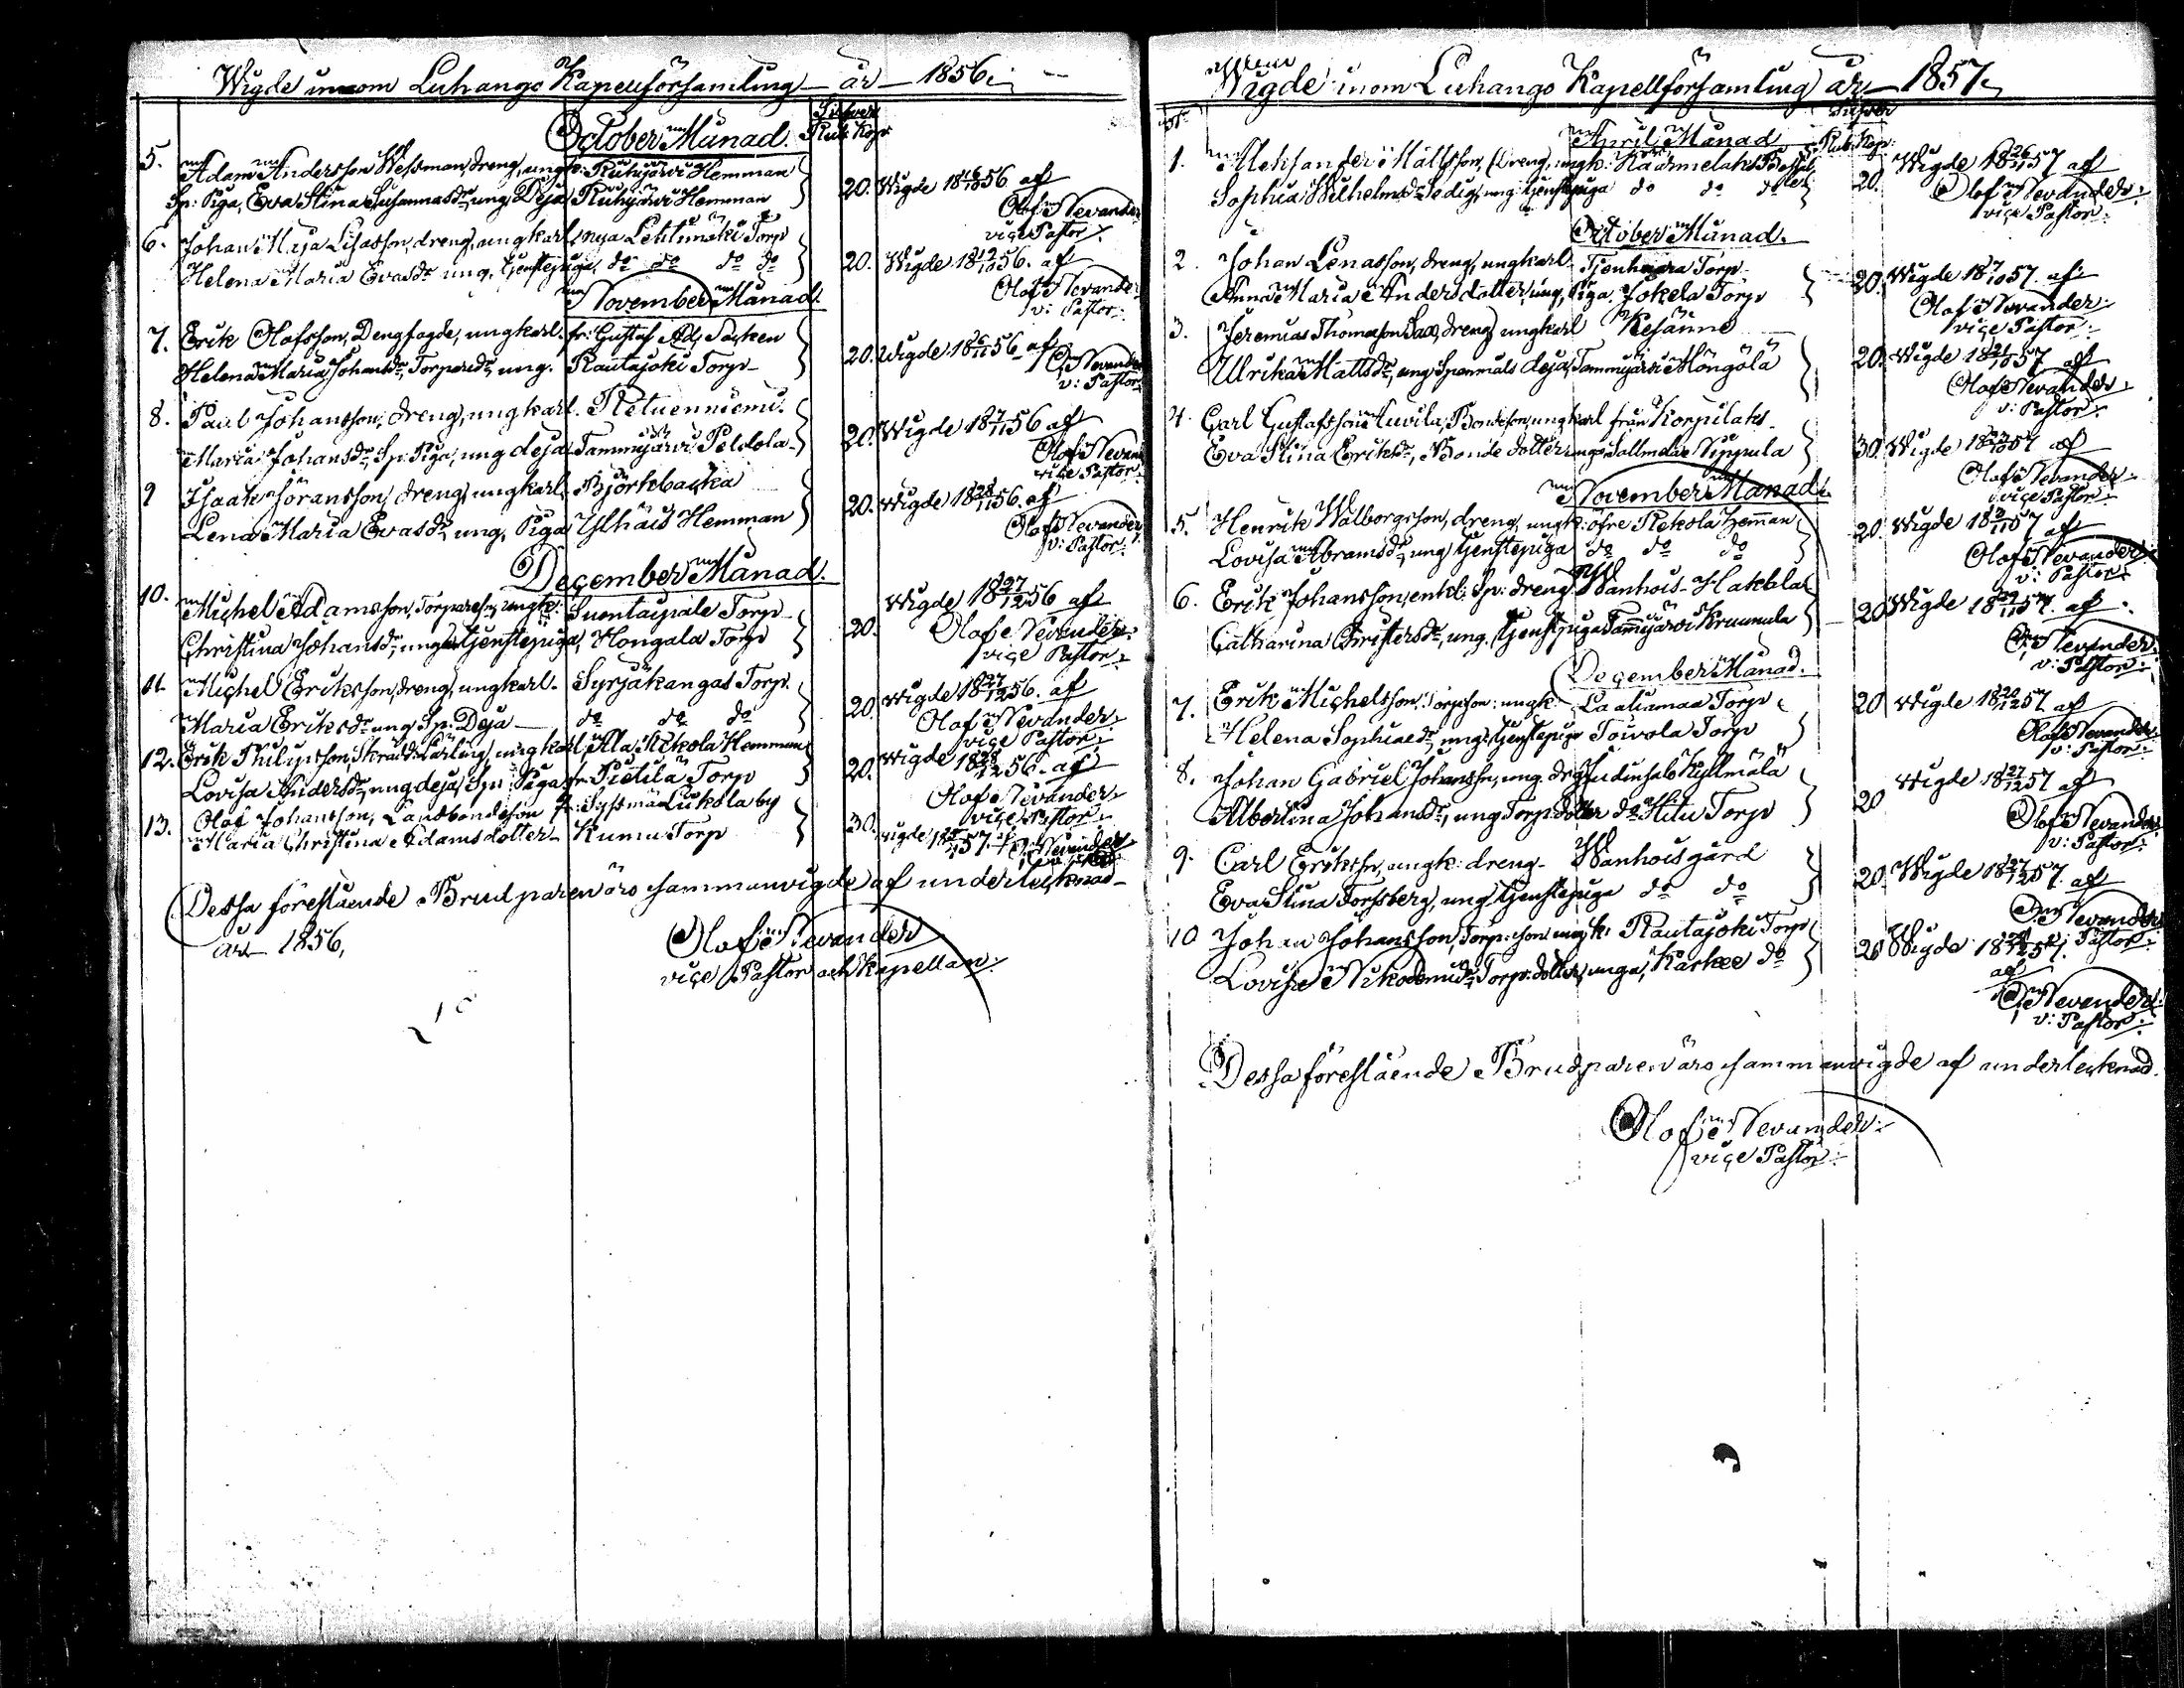 Wigde inom Luhango Kapellförsamling år 1856.
Silfver
October Månad. Rub. Kop.
5. Adam Andersson Wessman, dreng, ungk: Ruhijärvi Hemman
Sp: Piga, Eva Stina Susannasdr, ung Deja Ruhijärvi Hemman
20. Wigde 18 56 af
Olof Nevander
vice Pastor.
6. Johan Maja Lisasson, dreng, ungkarl, nya Lehtimäki Torp
Helena Maria Evasdr ung, tjenstepiga, do do do do
20. Wigde 18 12/10 56. af
Olof Nevander
v: Pastor.
November Månad.
7. Erik Olofsson, Dengfogde, ungkarl. fr: Gustaf Ad:
Helena Maria Johansdr, Torparedr, ung. Rautajoki Torp
20. Wigde 18 56 af
O. Nevander
v: Pastor
8. Paul Johansson, dreng, ungkarl. Retuenniemi.
Maria Johansdr, Sp: Piga, ung deja Tammijärvi Peldola
20. Wigde 18 56 af
Olof Nevander
vice Pastor.
9 Isaak Jöransson, dreng, ungkarl. Björkbacka
Lena Maria Evasdr, ung, Piga Ylhäis Hemman
20. Wigde 18 56. af
Olof Nevander
v: Pastor.
December Månad.
10. Michel Adamsson, Torpareson, ungk: Suontaipale Torp
Christina Johansdr, ung tjenstepiga, Hongala Torp
20. Wigde 18 27/12 56 af
Olof Nevander
vice Pastor.
11. Michel Eriksson, dreng, ungkarl. Syrjäkangas Torp.
Maria Eriksdr ung Sp: Deja do do do
20. Wigde 18 27/12 56. af
Olof Nevander
vice Pastor
12. Erik Philipsson, Skrädd: Lärling, ungkarl Alla Rekola Hemman
Lovisa Andersdr, ung deja, Sp: Piga fr: Pietilä Torp
20. Wigde 18 28/12 56. af
Olof Nevander
vice Pastor
13. Olof Johansson, Landbondeson fr: Sysmä Liikola by
Maria Christina Adamsdotter Kumu Torp
30. Wigde 18 57. af O. Nevander
Dessa förestående Brudparen äro sammanvigde af undertecknad
år 1856,
Olof Nevander
vice Pastor och Kapellan.
Wigde inom Luhango Kapellförsamling år 1857.
Silfver
April Månad Rub. Kop.
1. Alexander Mattsson, dreng, ungk:
Sophia Wilhelmsdr Ledig, ung tjenstepiga do do do
20. Wigde 18 26/ 57 af
Olof Nevander
vice Pastor.
October Månad.
2. Johan Lenasson, dreng, ungkarl. Torp
Anna Maria Andersdotter, ung, Piga. Jokela Torp
20. Wigde 18 57. af
Olof Nevander
vice Pastor
3. Jeremias Thomasson Sax, dreng ungkarl Kesänne
Ulrika Mattsdr, ung Spanmåls deja, Tammijärvi Möngölä
20. Wigde 18 57 af
Olof Nevander
v: Pastor
4. Carl Gustafsson Huvila, Bondeson, ungkarl från Korpilaks
Eva Stina Eriksdr, Bonde dotter, ung Nippula
30. Wigde 18 57 af
Olof Nevander
vice Pastor
November Månad.
5. Henrik Walborgsson, dreng, ungk: öfre Rekola Hemman
Lovisa Abramsdr, ung tjenstepiga do do do
20. Wigde 18 57 af
Olof Nevander
v: Pastor
6. Erik Johansson, enkl: Sp: dreng Wanhois Hakkila
Catharina Christersdr, ung. tjenstpiga Tammijärvi Kruunula
20 Wigde 18 29/11 57. af
O. Nevander
v: Pastor.
December Månad.
7. Erik Michelsson, Torpson: ungk. Laalimaa Torp
Helena Sophiaedr, ung tjenstepiga Toivola Torp
20 Wigde 18 20/12 57 af
Olof Nevander
v: Pastor
8. Johan Gabriel Johansson, ung. drg Kyllmälä
Albertina Johansdr, ung Torp: dotter do Torp
20 Wigde 18 27/12 57 af
Olof Nevander
v: Pastor.
9. Carl Eriksson, ungk: dreng Wanhoisgård
Eva Stina Forssberg, ung tjenstepiga do do
20. Wigde 18 27/12 57. af
O. Nevander
v: Pastor.
10 Johan Johansson, Torp: son ungk: Rautajoki Torp
Lovisa Nikodemusdr Torp: dotter, unga, Karkee do
20 Wigde 18 57.
af
O. Nevander.
v: Pastor.
Dessa förestående Brudparen äro sammanvigde af undertecknad.
Olof Nevander
vice Pastor.